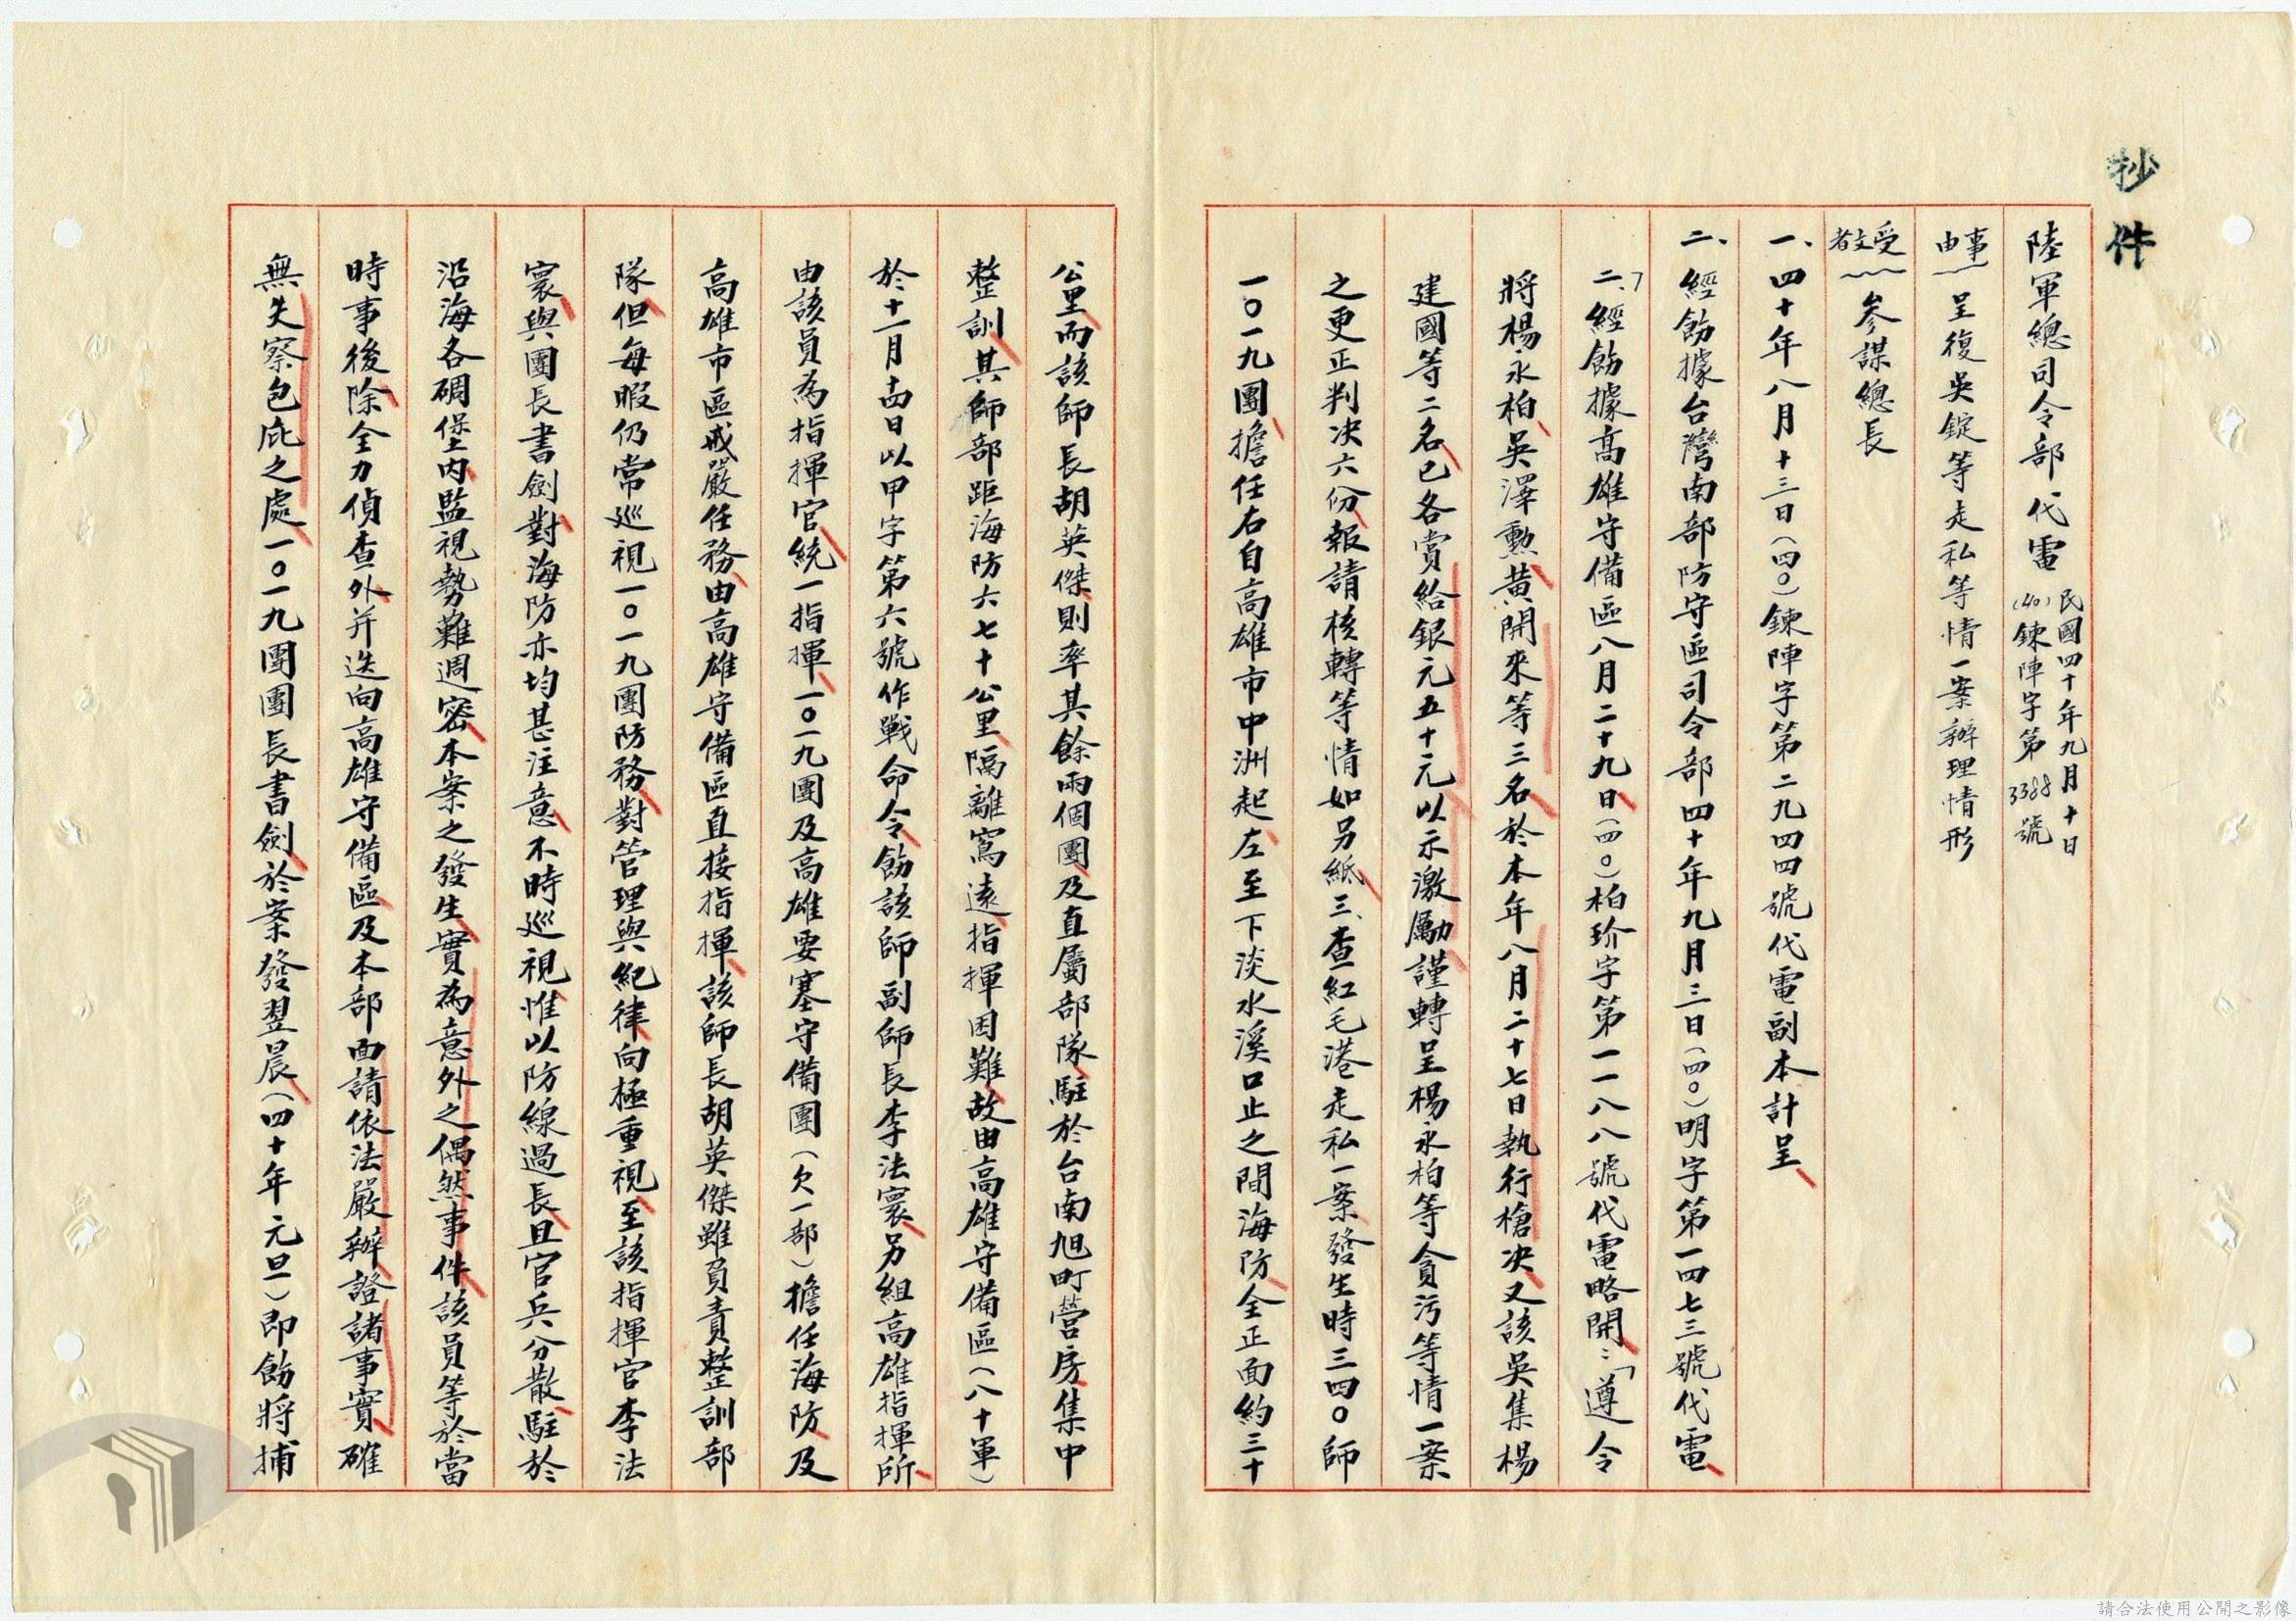 抄件
陸軍總司令部代電
民國四十年九月十日
(40)鍊陣字第3388號
事由
呈復吳錠等走私等情一案辦理情形
受文者
參謀總長
一、四十年八月十三日(四〇)鍊陣字第二九四四號代電副本計呈
二、經飭據台灣南部防守區司令部四十年九月三日(四〇)明字第一四七三號代電
「二、經飭據高雄守備區八月二十九日(四〇)柏玠字第一一八八號代電略開:「遵令
將楊永柏吳澤勲黃開來等三名於本年八月二十七日執行槍決又該吳集楊
建國等二名已各賞給銀元五十元以示激勵謹轉呈楊永柏等貪污等情一案
之更正判決六份報請核轉等情如另紙三、查紅毛港走私一案發生時三四〇師
一〇一九團擔任右自高雄市中洲起左至下淡水溪口止之間海防全正面約三十
公里而該師長胡英傑則率其餘兩個團及直屬部隊駐於台南旭町營房集中
整訓其師部距海防六七十公里隔離寫遠指揮困難故由高雄守備區(八十軍)
於十一月十四日以甲字第六號作戰命令飭該師副師長李法寰另組高雄指揮所
由該員為指揮官統一指揮一〇一九團及高雄要塞守備團(欠一部)擔任海防及
高雄市區戒嚴任務由高雄守備區直接指揮該師長胡英傑雖負責整訓部
隊但每暇仍常巡視一〇一九團防務對管理與紀律向極重視至該指揮官李法
寰與團長書劍對海防亦均甚注意不時巡視惟以防線過長且官兵分散駐於
沿海各碉堡內監視勢難週密本案之發生實為意外之偶然事件該員等於當
時事後除全力偵查外并迭向高雄守備區及本部面請依法嚴辦證諸事實確
無失察包庇之處一〇一九團團長書劍於案發翌晨(四十年元旦)即飭將捕
請合法使用公開之影像